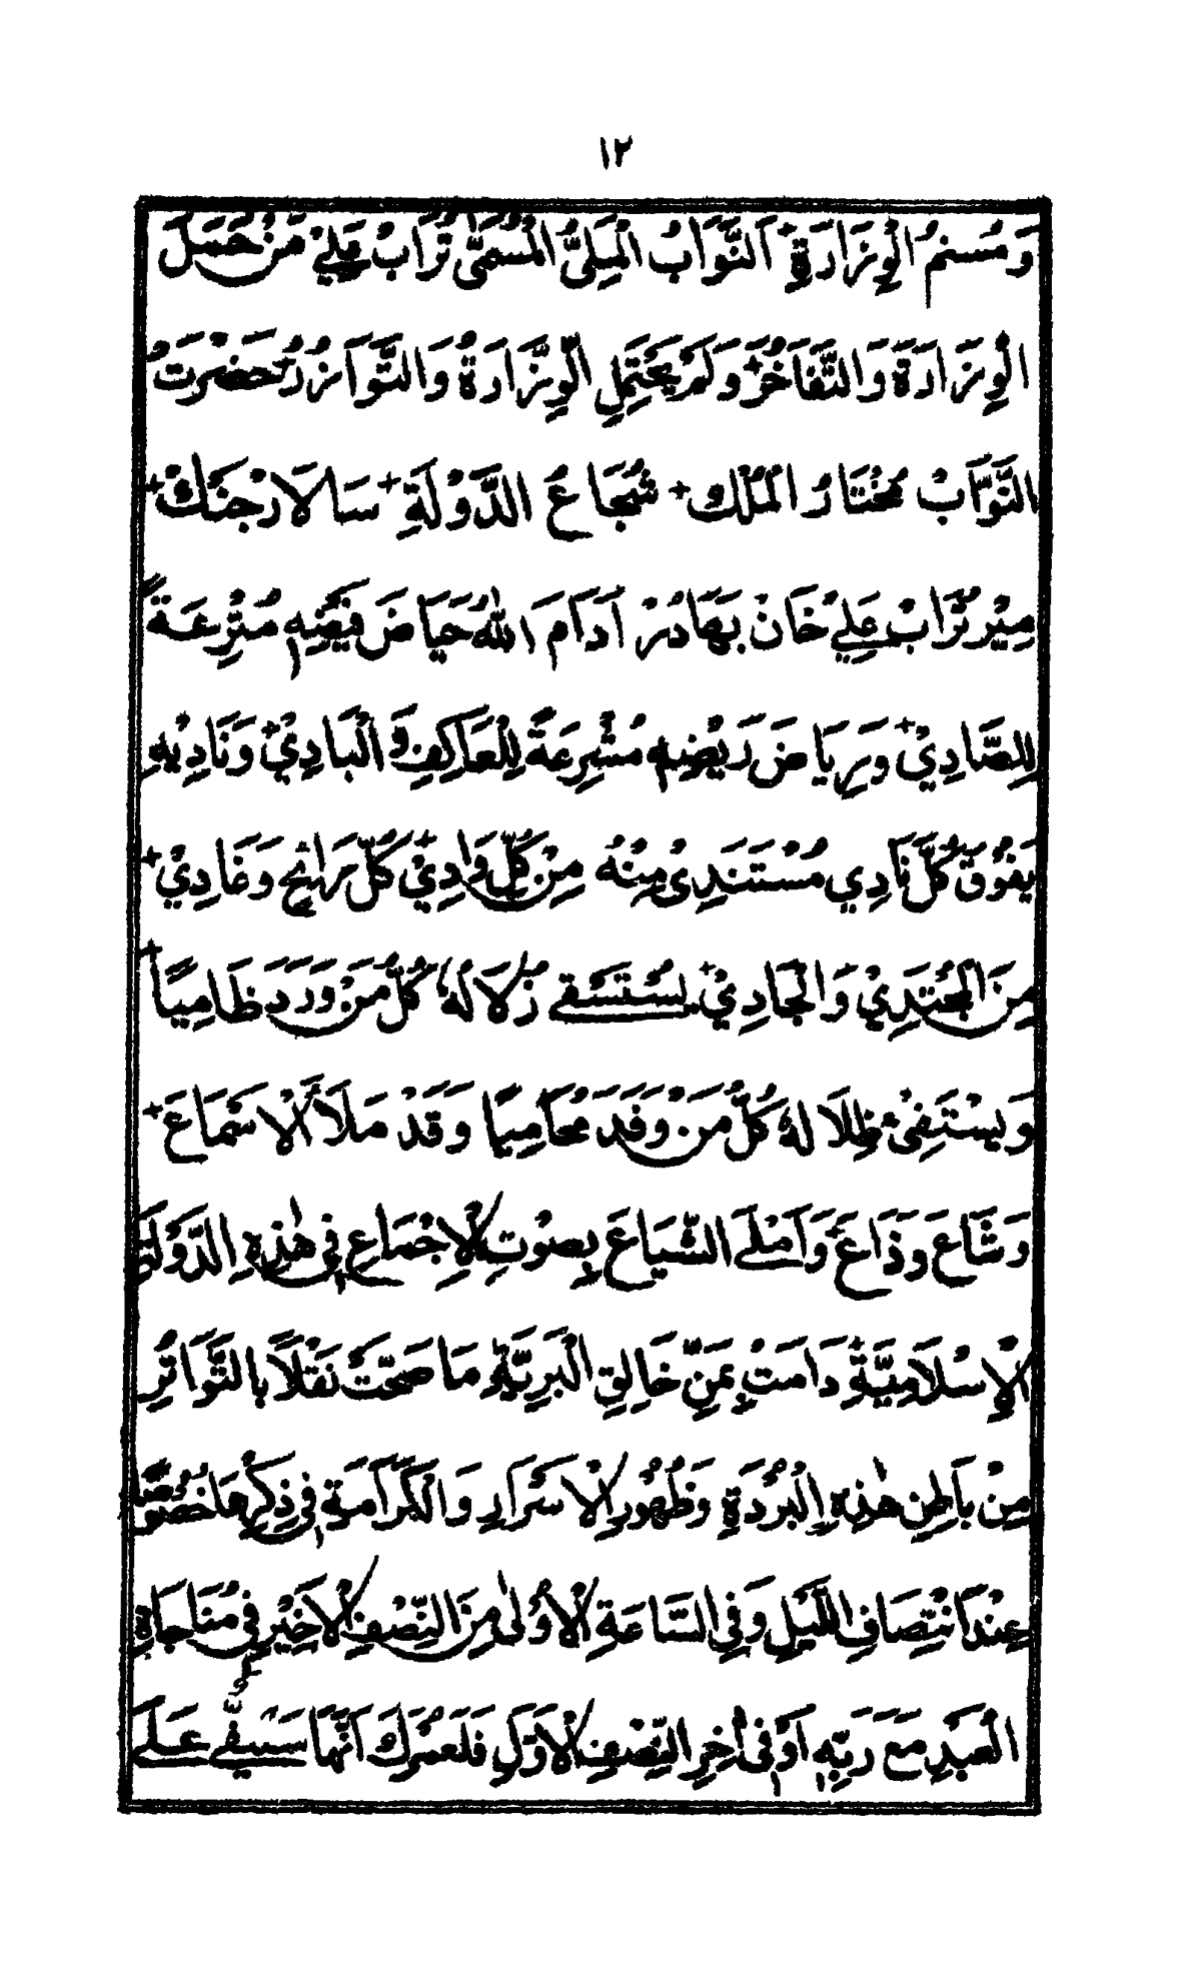 ١٢
وَمُسنمُ الْوِزَارَةِ اَلنَّوَّابُ الْمَلِیُّ الْمُسَمّٰی تُرَابُ عَلِیْ مَنْ حَمَلَ
الْوِزَارَةَ وَالتَّفَاخُرَ وَلَمْ يَحْتَمِلِ الْوِزَّارَةُ وَالتَّوَآزُرُ حَضْرَتُ
النَّوَّابْ مُخْتَارُ الْمُلْك شُجَاعُ الدَّوْلَةِ سَالَارْجَنْكْ
مِيْر تُرَابْ عَلِيْ خَانْ بَهَادُرْ اَدَامَ اللّٰهُ حِيَاضَ فَيْضِهٖ مُتْرِعَةً
لِلصَّادِيْ وَرِيَاضَ رَيْضِهٖ مُشْرِعَةً لِلْعَاكِفِ وَالْبَادِيْ وَنَادِيْهِ
يَفُوْقُ كُلَّ نَادِي مُسْتَنَدِیْ مِنْهُ مِنْ كُلِّ وَادِيْ كُلُّ رَائِحٍ وَغَادِيْ
مِنَ الْمُجْتَدِيْ وَالْجَادِيْ يَسْتَسْقِے زُلَالَهُ كُلُّ مَنْ وَرَدَ ظَامِيًا
وَيَسْتَفِیْءُ ظِلَالَهُ كُلُّ مَنْ وَفَدَ مُحَامِيًا وَقَدْ مَلَأَ الْاَسْمَاعَ
وَشَاعَ وَذَاعَ وَاَمْلَےَ الشِّيَاعَ بِصَوْتِ الْاِجْمَاعِ فِیْ هٰذِهِ الدَّوْلَةِ
الْاِسْلَامِيَّةِ دَامَتْ بِمَنِّ خَالِقِ الْبَرِيَّةِ مَا صَحَّتْ نَقْلًا بِالتَّوَاتُرِ
مِنْ بَاطِنِ هٰذِهِ الْبُرْدَةِ وَظُهُوْرِ الْاَسْرَارِ وَالْكَرَامَةِ فِیْ ذِكْرِهَا خُصُوْصًا
عِنْدَ انْتِصَافِ اللَّيْلِ وَفِی السَّاعَةِ الْاُوْلٰی مِنَ النِّصْفِ الْاَخِيْرِ فِیْ مُنَاجَاةِ
الْعَبْدِ مَعَ رَبِّهٖ اَوْ فِیْ اٰخِرِ النِّصْفِ الْاَوَّلِ فَلَعَمْرُكَ اَنَّهَا سَيْفِیْ عَلَےَ